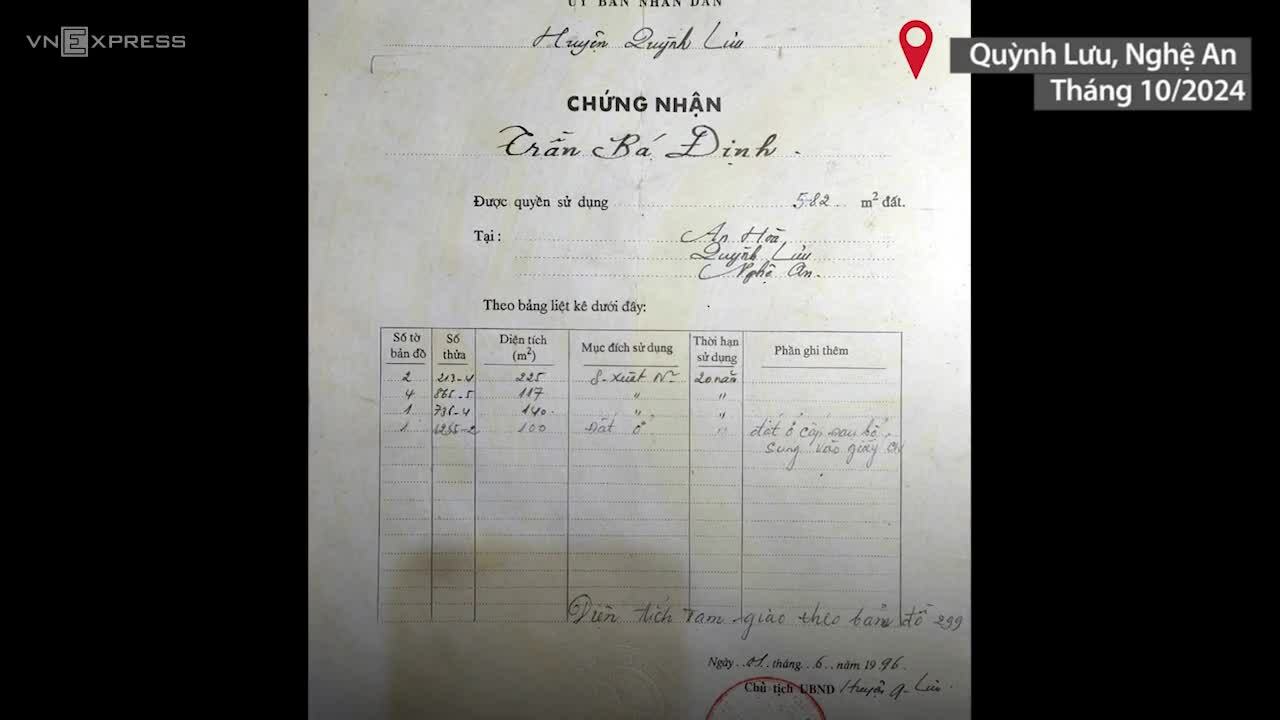 VNEXPRESS
Quỳnh Lưu, Nghệ An
Tháng 10/2024
ỦY BAN NHÂN DÂN
Huyện Quỳnh Lưu
CHỨNG NHẬN
Trần Bá Định
Được quyền sử dụng 582 m² đất.
Tại : An Hoà
Quỳnh Lưu
Nghệ An.
Theo bảng liệt kê dưới đây:
Số tờ bản đồ Số thửa Diện tích (m²) Mục đích sử dụng Thời hạn sử dụng Phần ghi thêm
2 213-4 225 S-xuất Nº 20 năm
4 865-5 117 " "
1 735-4 140 " "
1 100 Đất ở " đất ở cấp sau bổ
sung vào giấy
Diện tích tạm giao theo bản đồ 299
Ngày 01 tháng 6 năm 1996
Chủ tịch UBND Huyện Q- Lưu